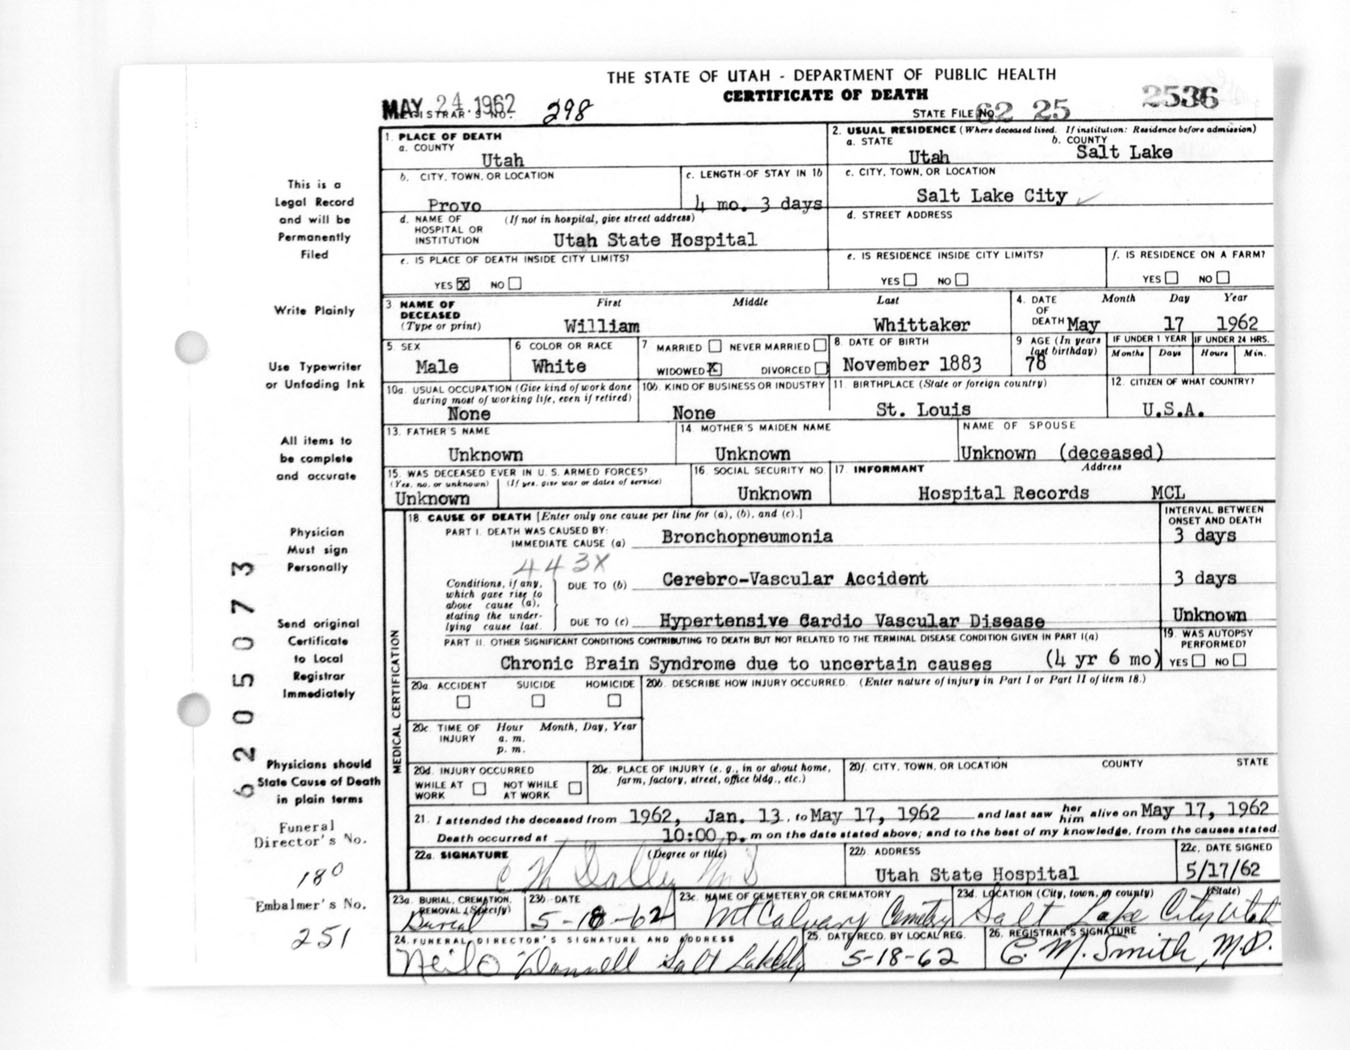 THE STATE OF UTAH - DEPARTMENT OF PUBLIC HEALTH
CERTIFICATE OF DEATH
MAY 24 1962
REGISTRAR'S NO. 298
STATE FILE NO. 62 25 2536
This is a
Legal Record
and will be
Permanently
Filed
Write Plainly
Use Typewriter
or Unfading Ink
All items to
be complete
and accurate
Physician
Must sign
Personally
Send original
Certificate
to Local
Registrar
Immediately
Physicians should
State Cause of Death
in plain terms
Funeral
Director's No.
180
Embalmer's No.
251
6205073
1. PLACE OF DEATH
a. COUNTY
Utah
2. USUAL RESIDENCE (Where deceased lived. If institution: Residence before admission)
a. STATE Utah
b. COUNTY Salt Lake
b. CITY, TOWN, OR LOCATION
Provo
c. LENGTH OF STAY IN 1b
4 mo. 3 days
c. CITY, TOWN, OR LOCATION
Salt Lake City
d. NAME OF HOSPITAL OR INSTITUTION (If not in hospital, give street address)
Utah State Hospital
d. STREET ADDRESS
e. IS PLACE OF DEATH INSIDE CITY LIMITS?
YES X NO
e. IS RESIDENCE INSIDE CITY LIMITS?
YES NO
f. IS RESIDENCE ON A FARM?
YES NO
3 NAME OF DECEASED (Type or print)
First Middle Last
William Whittaker
4. DATE OF DEATH Month Day Year
May 17 1962
5. SEX
Male
6 COLOR OR RACE
White
7 MARRIED NEVER MARRIED
WIDOWED X DIVORCED
8. DATE OF BIRTH
November 1883
9 AGE (In years last birthday)
78
IF UNDER 1 YEAR Months Days
IF UNDER 24 HRS. Hours Min.
10a. USUAL OCCUPATION (Give kind of work done during most of working life, even if retired)
None
10b. KIND OF BUSINESS OR INDUSTRY
None
11. BIRTHPLACE (State or foreign country)
St. Louis
12. CITIZEN OF WHAT COUNTRY?
U.S.A.
13. FATHER'S NAME
Unknown
14. MOTHER'S MAIDEN NAME
Unknown
NAME OF SPOUSE
Unknown (deceased)
15. WAS DECEASED EVER IN U. S. ARMED FORCES?
(Yes, no, or unknown) (If yes, give war or dates of service)
Unknown
16. SOCIAL SECURITY NO
Unknown
17. INFORMANT Address
Hospital Records MCL
MEDICAL CERTIFICATION
18. CAUSE OF DEATH [Enter only one cause per line for (a), (b), and (c).]
INTERVAL BETWEEN ONSET AND DEATH
PART I. DEATH WAS CAUSED BY:
IMMEDIATE CAUSE (a) Bronchopneumonia 3 days
443X
Conditions, if any, which gave rise to above cause (a), stating the underlying cause last.
DUE TO (b) Cerebro-Vascular Accident 3 days
DUE TO (c) Hypertensive Cardio Vascular Disease Unknown
PART II. OTHER SIGNIFICANT CONDITIONS CONTRIBUTING TO DEATH BUT NOT RELATED TO THE TERMINAL DISEASE CONDITION GIVEN IN PART I(a)
Chronic Brain Syndrome due to uncertain causes (4 yr 6 mo)
19. WAS AUTOPSY PERFORMED?
YES NO
20a. ACCIDENT SUICIDE HOMICIDE
20b. DESCRIBE HOW INJURY OCCURRED. (Enter nature of injury in Part I or Part II of item 18.)
20c. TIME OF INJURY Hour Month, Day, Year
a. m.
p. m.
20d. INJURY OCCURRED
WHILE AT WORK NOT WHILE AT WORK
20e. PLACE OF INJURY (e. g., in or about home, farm, factory, street, office bldg., etc.)
20f. CITY, TOWN, OR LOCATION COUNTY STATE
21. I attended the deceased from 1962, Jan. 13, to May 17, 1962 and last saw her him alive on May 17, 1962
Death occurred at 10:00 p. m on the date stated above; and to the best of my knowledge, from the causes stated.
22a. SIGNATURE (Degree or title)
22b. ADDRESS
Utah State Hospital
22c. DATE SIGNED
5/17/62
23a. BURIAL, CREMATION, REMOVAL (Specify)
Burial
23b. DATE
5-18-62
23c. NAME OF CEMETERY OR CREMATORY
Mt Calvary Cemetery
23d. LOCATION (City, town, or county) (State)
Salt Lake City Utah
24. FUNERAL DIRECTOR'S SIGNATURE AND ADDRESS
Neil O'Donnell Salt Lake City
25. DATE RECD. BY LOCAL REG.
5-18-62
26. REGISTRAR'S SIGNATURE
C. M. Smith, M.D.